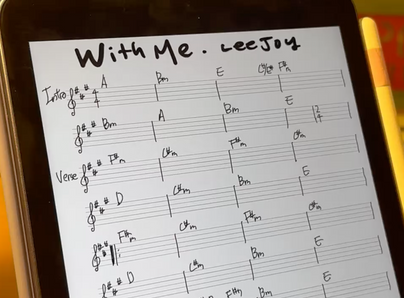 With Me. LeeJoy
Intro A Bm E C#/E# F#m
4
4
Bm A Bm E 2
4
Verse F#m C#m F#m C#m
D C#m Bm E
F#m C#m F#m C#m
D C#m Bm E
F#m Bm E